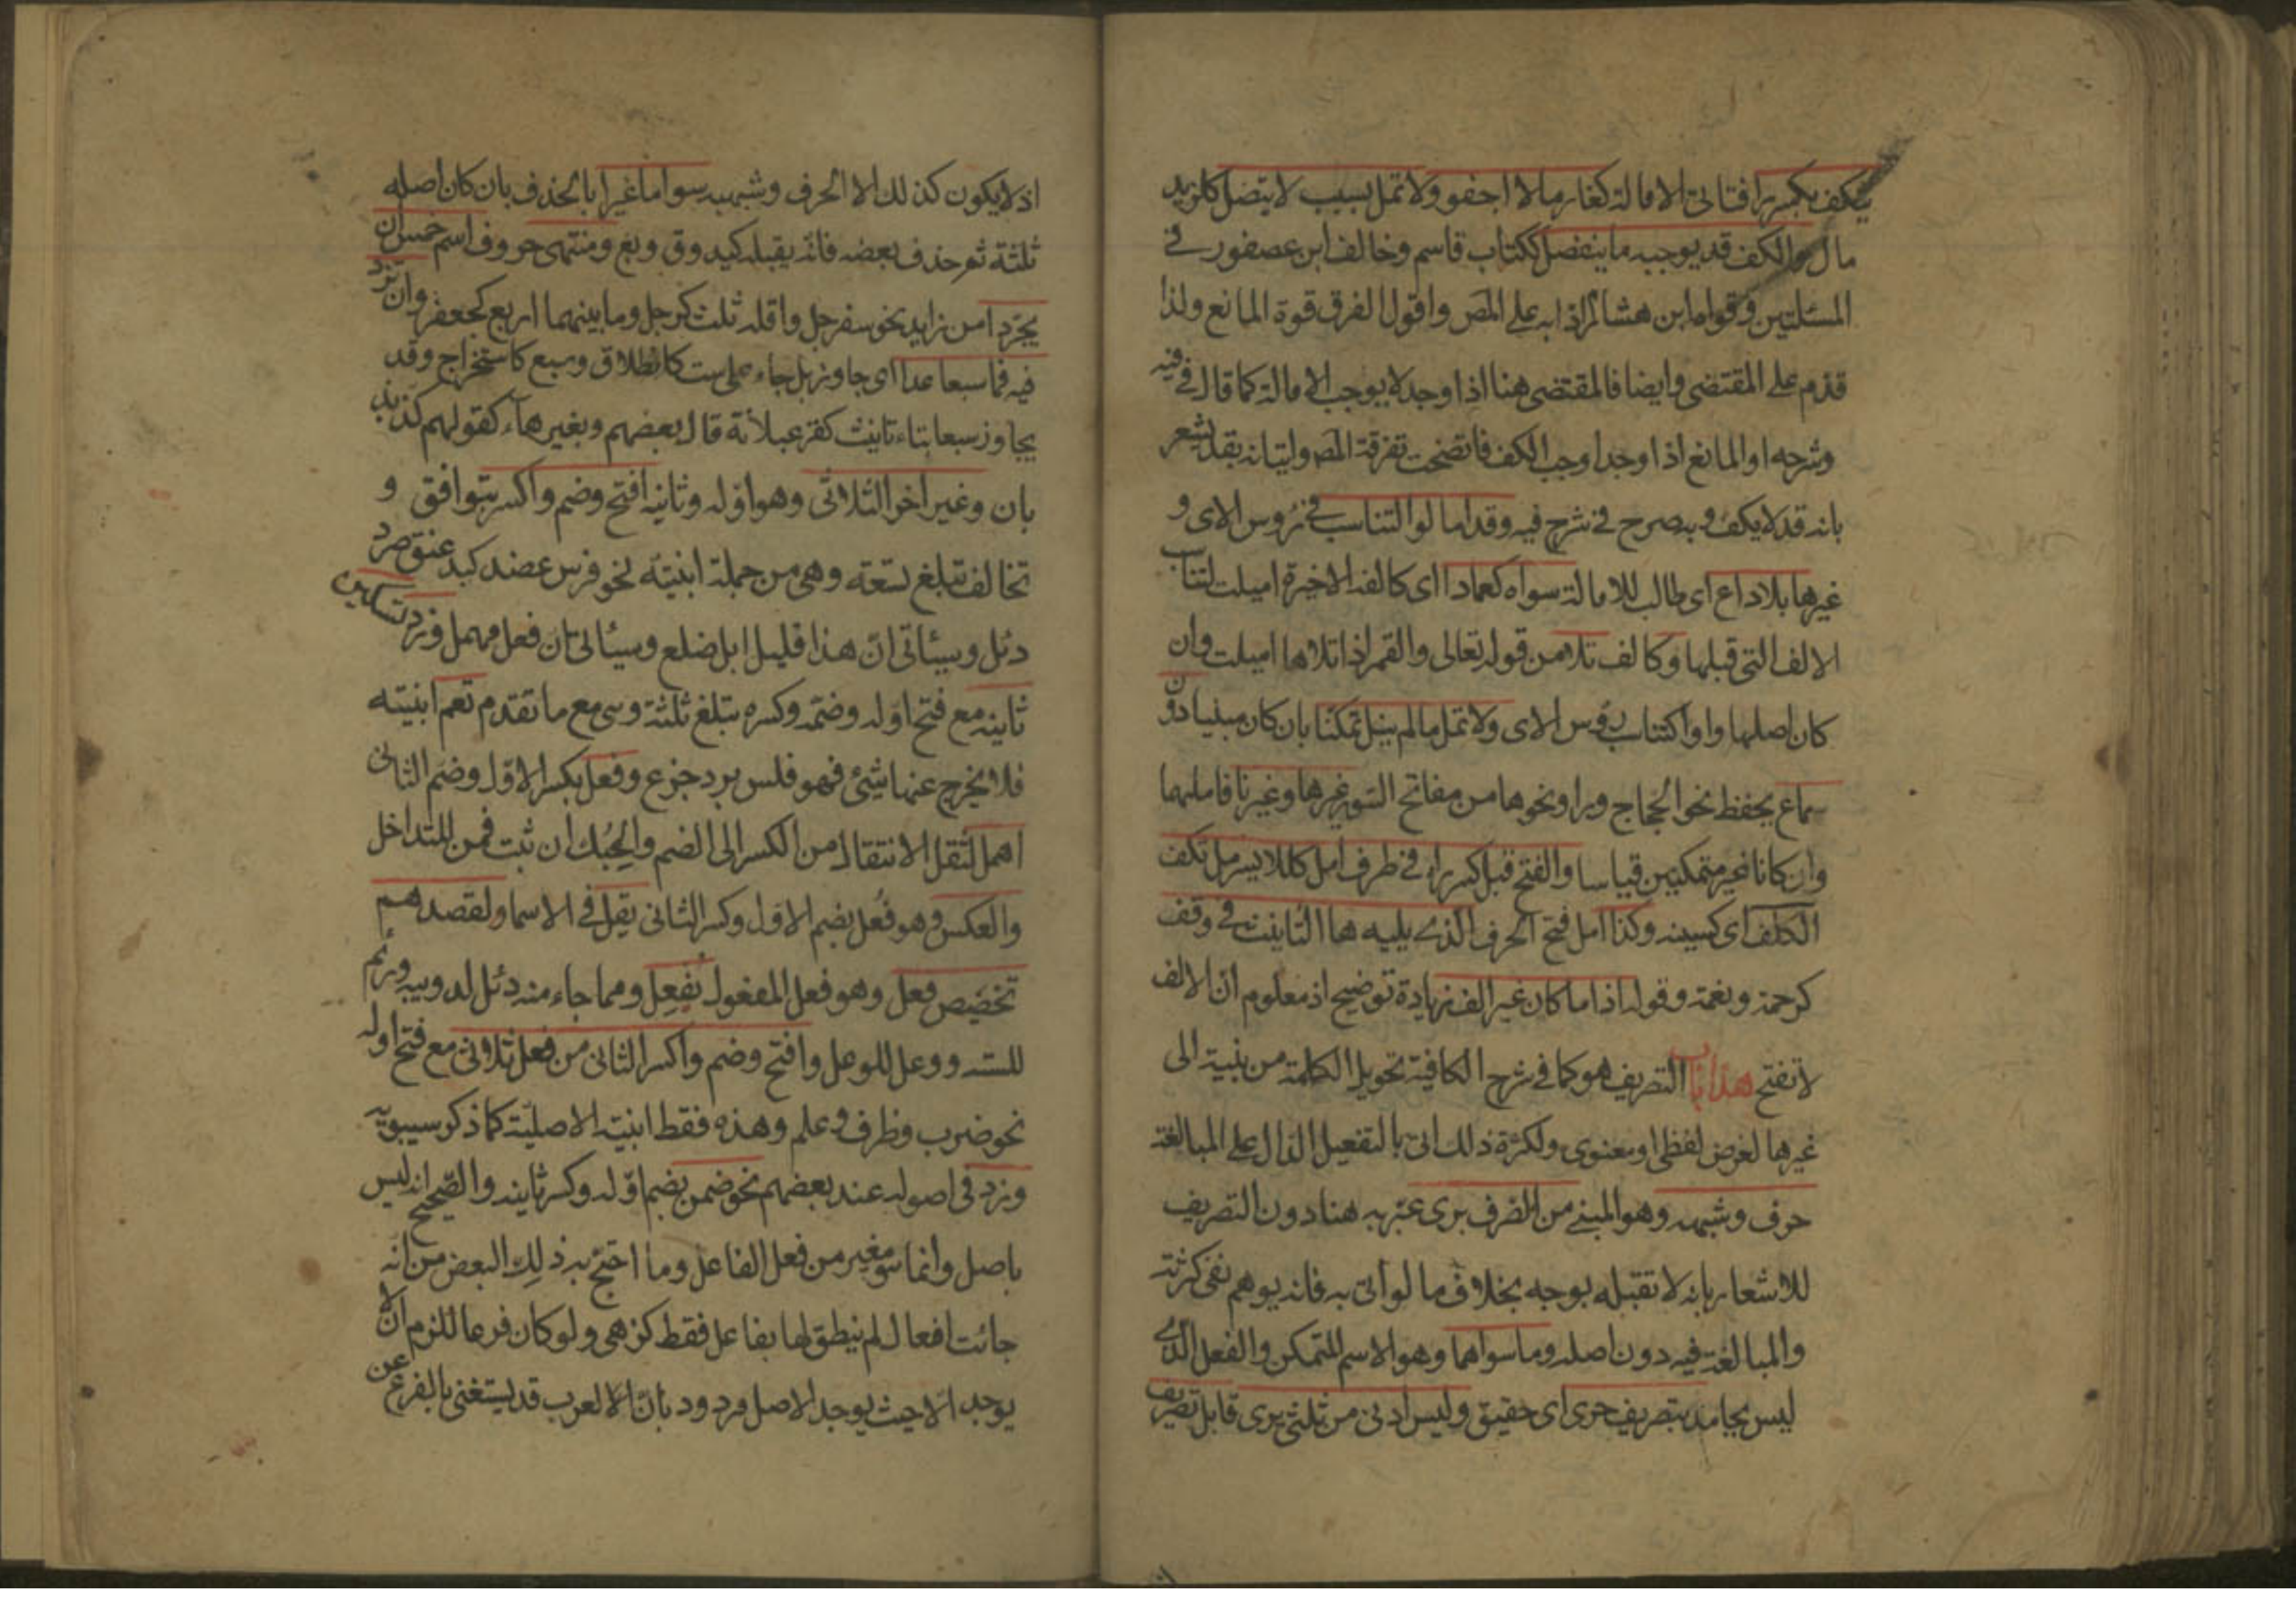 ينكف بكسر را فتاتى الامالة كغارما لا اجفو ولا تمل لسبب لا يتصل كلزيد
مال والكف قد يوجبه ما ينفصل ككتاب قاسم وخالف ابن عصفور فى
المسئلتين وقواه ابن هشام رادا به على المص واقول الفرق قوة المانع ولذا
قدم على المقتضى وايضا فالمقتضى هنا اذا وجد لا يوجب الامالة كما قال فى
وشرحه اوالمانع اذا وجد اوجب الكف فاتضحت تفرقة المصـ ولتيانه بقد ليشعر
بانه قد لا يكف وبه صرح فى شرح فيه وقد امالوا لتناسب فى رؤس الاى و
غيرها بلا داع اى طالب للامالة سواه كعمادا اى كالفه الاخيرة اميلت لتناسب
الالف التى قبلها وكالف تلا من قوله تعالى والقمر اذا تلاها اميلت وان
كان اصلها واوا كتناسب رؤس الاى ولا تمل ما لم ينل تمكنا بان كان مبنيا دون
سماع يحفظ نحو الحجاج ورا ونحوها من مفاتح السور غير ها وغير نا فاملهما
وان كانا غير متمكنين قياسا والفتح قبل كسر راء فى طرف امل كللايسر مل تكف
الكلف اى كسينه وكذا امل فتح الحرف الذى يليه هاا التانيث فى وقف
كرحمة ونعمة وقوله اذا ما كان غير الف زيادة توضيح اذ معلوم ان الالف
لا تفتح هذا باب التصريف هو كما فى شرح الكافية تحويل الكلمة من بنية الى
غيرها لغرض لفظى اومعنوى ولكثرة ذلك اتى بالتفعيل الدال على المبالغة
حرف وشبهه وهو المبنى من الصرف برى عبر به هنا دون التصريف
للاشعار بانه لا تقبله بوجه بخلاف ما لو أتى به فانه يوهم نفى كثرته
والمبالغة فيه دون اصله وما سواهما وهو الاسم المتمكن والفعل الذى
ليس بجامد بتصريف حرى اى حقيق وليس ادنى من ثلثى يرى قابل تصريف
اذ لا يكون كذلك الا الحرف وشبهه سوا ما غيرا بالحذف بان كان اصله
ثلثة ثم حذف بعضه فانه يقبله كيد وق وبع ومنتهى حروف اسم خمس ان
يجردا من زايد نحو سفرجل واقله ثلث كرجل وما بينهما اربع كجعفر وان يزد
فيه فما سبعا عدا اى جاوز بل جاء على ست كانطلاق وسبع كاستخراج وقد
يجاوز سبعا بتاء تانيث كقرعبلانة قال بعضهم وبغير هاء كقولهم كذبذ
بان وغير اخر الثلاثى وهو اوله وثانيه افتح وضم واكسر بتوافق و
تخالف تبلغ تسعة وهى من جملة ابنيته نحو فرس عضد كبد عنق صرد
دئل وسيئاتى ان هذا قليل ابل ضلع وسيئاتى ان فعل مهمل وزد تسكين
ثانيه مع فتح اوله وضمه وكسره تبلغ ثلثة وهى مع ما تقدم تعم ابنيته
فلا يخرج عنها شيئ فهو فلس برد جزع وفعل بكسر الاول وضم الثانى
اهمل لثقل الانتقال من الكسر الى الضم والحبك ان ثبت فمن المتداخل
والعكس وهو فعل بضم الاول وكسر الثانى يقل فى الاسما ولقصدهم
تخصيص فعل وهو فعل المفعول بفعل ومما جاء منه دئل لدويبه ورئم
للسته ووعل للوعل وافتح وضم واكسر الثانى من فعل ثلاثى مع فتح اوله
نحو ضرب وظرف وعلم وهذه فقط ابنيته الاصلية كما ذكر سيبويه
وزد فى اصوله عند بعضهم نحو ضمن بضم اوله وكسر ثانيه والصحيح انه ليس
باصل وانما هو مغير من فعل الفاعل وما احتج به ذلك البعض من انه
جائت افعال لم ينطق لها بفاعل فقط كزهى ولو كان فرعا للزم ان لا
يوجد الا حيث يوجد الاصل مردود بان العرب قد يستغنى بالفرع عن